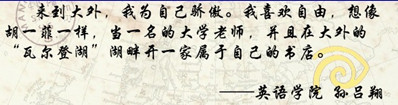 来到大外，我为自己骄傲。我喜欢自由，想像
胡一菲一样，当一名的大学老师，并且在大外的
“瓦尔登湖”湖畔开一家属于自己的书店。
——英语学院 孙吕翔